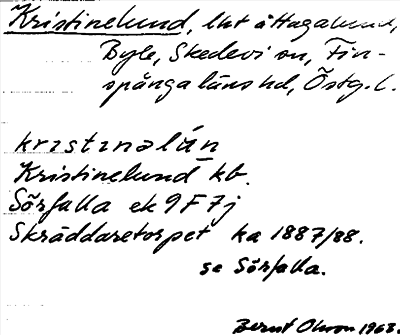 Kristinelund, lht å Hagalund,
Byle, Skedevi sn, Fin-
spånga läns hd, Östg. l.
krıstınəlún
Kristinelund kb.
Sörfalla ek 9F7j
Skräddaretorpet ka 1887/88.
se Sörfalla.
Bernt Olsson 1963.